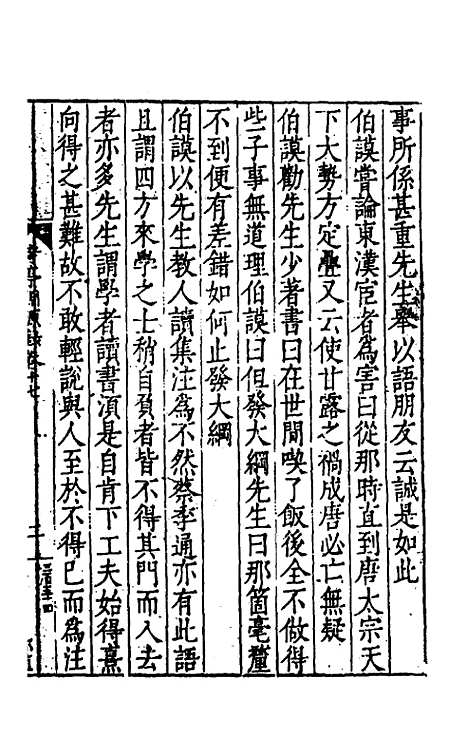 事所係甚重先生舉以語朋友云誠是如此
伯謨嘗論東漢宦者為害曰從那時直到唐太宗天
下大勢方定疊又云使甘露之禍成唐必亡無疑
伯謨勸先生少著書曰在世間喫了飯後全不做得
些子事無道理伯謨曰但發大綱先生曰那箇毫釐
不到便有差錯如何止發大綱
伯謨以先生教人讀集注為不然蔡季通亦有此語
且謂四方來學之士稍自負者皆不得其門而入去
者亦多先生謂學者讀書須是自肯下工夫始得熹
向得之甚難故不敢輕說與人至於不得已而為注